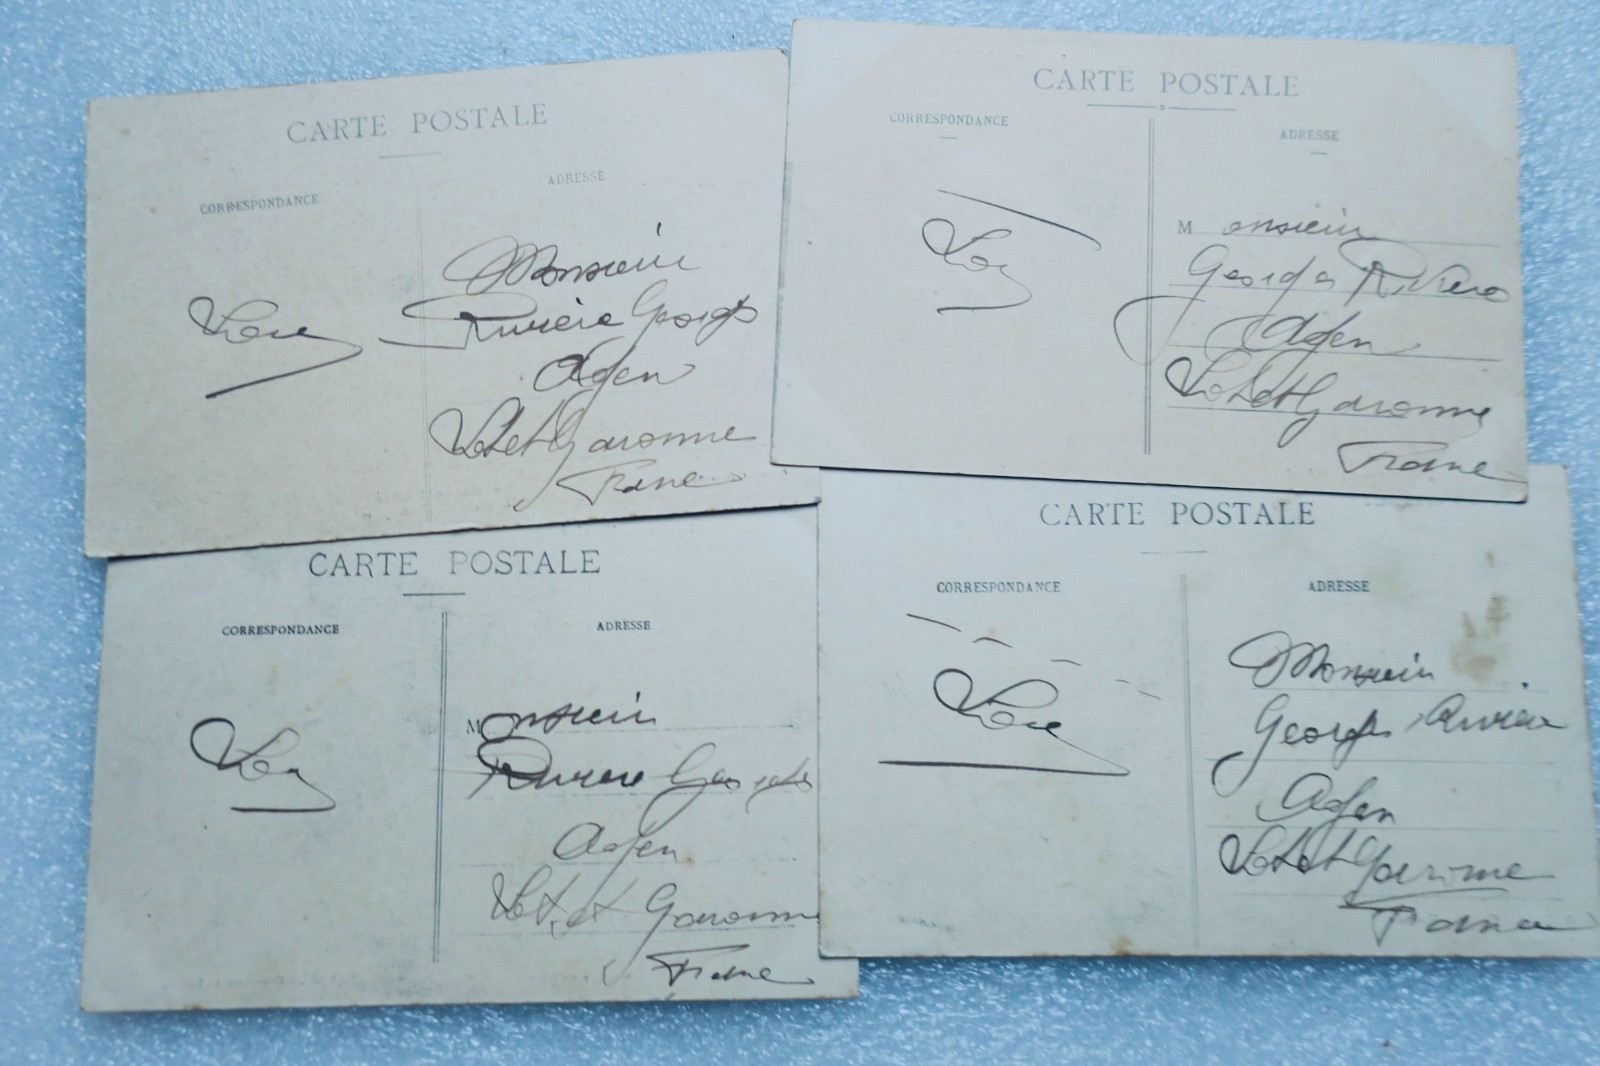 CARTE POSTALE
CORRESPONDANCE
ADRESSE
Monsieur
Rivière Georges
Agen
Lot et Garonne
France
CARTE POSTALE
CORRESPONDANCE
ADRESSE
Monsieur
Georges Rivière
Agen
Lot et Garonne
France
CARTE POSTALE
CORRESPONDANCE
ADRESSE
Monsieur
Rivière Georges
Agen
Lot et Garonne
France
CARTE POSTALE
CORRESPONDANCE
ADRESSE
Monsieur
Georges Rivière
Agen
Lot et Garonne
France